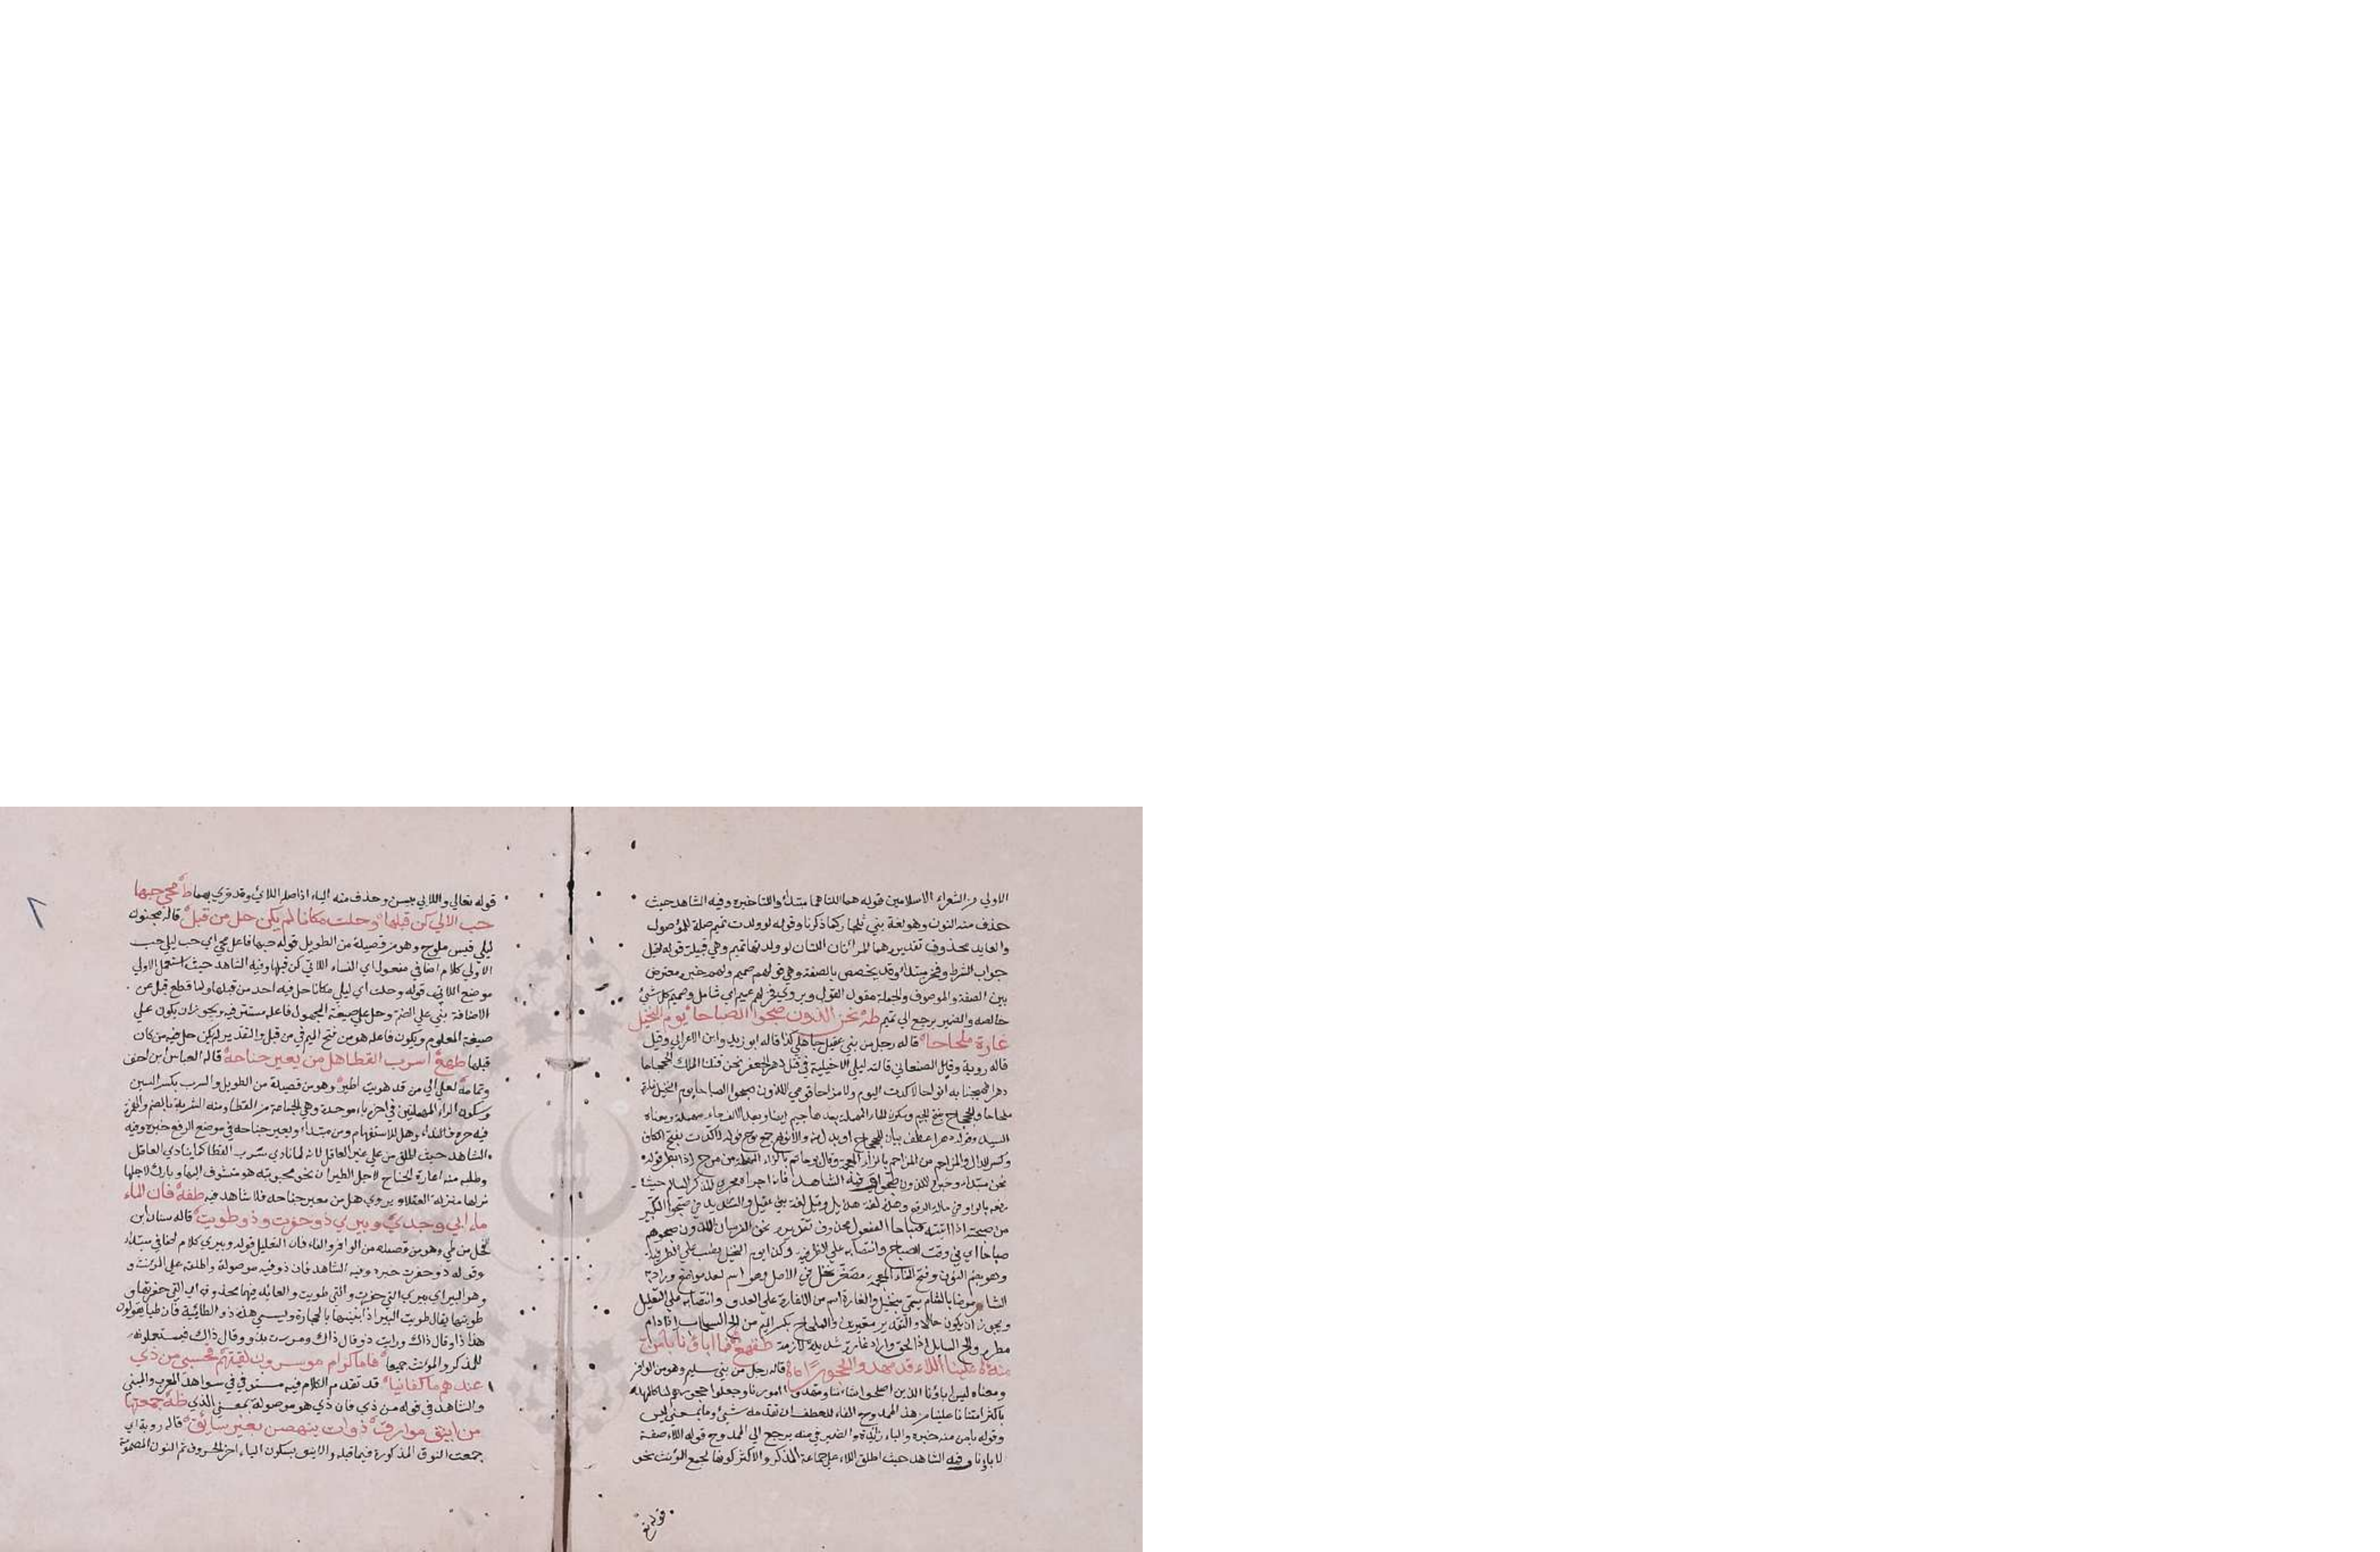 الاولي من الشعراء الاسلاميين قوله هما اللتا هما مبتدأ واللتا خبره وفيه الشاهد حيث
حذف منه النون وهو لغة بني كما ذكرنا وقوله لو ولدت تميم صلة للموصول
والعايد محذوف تقديره هما المرأتان اللتان لو ولدتهما تميم وهي قبيلة قوله لقيل
جواب الشرط وفخر مبتدأ وقد يخصص بالصفة وهي قولهم صميم ولهم خبره معترض
بين الصفة والموصوف والجملة مقول القول ويروي فخر لهم عميم اي شامل وصميم كل شيء
خالصه والضمير يرجع الي تميم نحن اللذون صبحوا الصباحا يوم النخيل
غارة ملحاحا قاله رجل من بني عقيل جاهلي كذا قاله ابو زيد وابن الاعرابي وقيل
قاله روبة وقال الصنعاني قالته ليلي الاخيلية في قتل دهر الجعفي نحن قتلنا الملك الجحجاحا
دهرا فهيجنا به انواحا لا كذب اليوم ولا مزاحا قومي اللذون صبحوا الصباحا يوم النخيل غارة
ملحاحا والجحجاح بفتح الجيم وسكون الحاء المهملة بعدها جيم ايضا وبعد الالف حاء مهملة ومعناه
السيد وقوله دهرا عطف بيان للجحجاح او بدل منه والانواح جمع نوح قوله لا كذب بفتح الكاف
وكسر الذال والمزاحم من المزاحم بالزاء المعجمة وقال ابو حاتم بالراء المهملة من مرح اذا بطر قوله
نحن مبتدا وخبره اللذون صبحوا وفيه الشاهد فانه اجراه مجري المذكر السالم حيث
رفعه بالواو في حالة الرفع وهذه لغة هذيل وقيل لغة بني عقيل والتشديد في صبحوا للتكثير
من صبحته اذا اتيته صباحا المفعول محذوف تقديره نحن الفرسان اللذون صبحوهم
صباحا اي في وقت الصباح وانتصابه علي الظرفية وكذا يوم النخيل نصب علي الظرفية
وهو بضم النون وفتح الخاء المعجمة مصغر نخل في الاصل وهو اسم لعدة مواضع وراد به
الشاعر موضعا بالشام يسمي بنخيل والغارة اسم من الاغارة علي العدو وانتصابه علي التعليل
ويجوز ان يكون حالا والتقدير مغيرين والملحاح بكسر الميم من الح السحاب اذا دام
مطره والح السايل اذا الحق واراد غارة شديدة لازمة فما اباؤنا بامن
منه علينا اللاء قد مهدوا الحجورا قاله رجل من بني سليم وهو من الوافر
ومعناه ليس اباؤنا الذين اصلحوا شاننا ومهدوا امورنا وجعلوا حجورهم لنا كالمهد
باكثر امتنانا علينا من هذا الممدوح الفاء للعطف ان تقدمه شيء وما بمعني ليس
وقوله بامن منه خبره والباء زائدة والضمير في منه يرجع الي الممدوح قوله اللاء صفة
لاباؤنا وفيه الشاهد حيث اطلق اللاء علي جماعة المذكر والاكثر كونها لجمع المؤنث نحو
قوله تع
قوله تعالي واللائي يئسن وحذف منه الياء اذ اصله اللائي وقد قري بهما محي حبها
حب الالي كن قبلها وحلت مكانا لم يكن حل من قبل قاله مجنون
ليلي قيس ملوح وهو من قصيدة من الطويل قوله حبها فاعل محي اي حب ليلي حب
الاولي كلام اضافي مفعول اي النساء اللاتي كن قبلها وفيه الشاهد حيث استعمل الاولي
موضع اللاتي قوله وحلت اي ليلي مكانا حل فيه احد من قبلها ولما قطع قبل عن
الاضافة بني علي الضم وحل علي صيغة المجهول فاعله مستتر فيه ويجوز ان يكون علي
صيغة المعلوم ويكون فاعله هو من فتح الميم في من قبل والتقدير لم يكن حل فيه من كان
قبلها اسرب القطا هل من يعير جناحه قاله العباس ابن احنف
وتمامه لعلي الي من قد هويت اطير وهو من قصيدة من الطويل والسرب بكسر السين
وسكون الراء المهملتين في اخره باء موحدة وهي الجماعة من القطا ومنه السربة بالضم والهمزة
فيه حرف النداء وهل للاستفهام ومن مبتدأ ويعير جناحه في موضع الرفع خبره وفيه
الشاهد حيث اطلق من علي غير العاقل لانه لما نادي سرب القطا كما ينادي العاقل
وطلب منه اعارة الجناح لاجل الطيران نحو محبوبته هو متشوف اليها وبارك لاجلها
نزلها منزلة العقلاء ويروي هل من معير جناحه فلا شاهد فيه فان الماء
ماء ابي وجدي وبيري ذو حفرت وذو طويت قاله سنان ابن
الفحل من طي وهو من قصيدة من الوافر والفاء فان للتعليل قوله وبيري كلام اضافي مبتدا
وقوله ذو حفرت خبره وفيه الشاهد فان ذو فيه موصولة واطلقه علي المؤنث و
وهو البير اي بيري التي حفرت والتي طويت والعائد فيها محذوف اي التي حفرتها و
طويتها يقال طويت البير اذا بنيتها بالحجارة ويسمي هذه ذو الطائية فان طيا يقولون
هذا ذو قال ذاك ورايت ذو قال ذاك ومررت بذو وقال ذاك فيستعملونه
للمذكر والمؤنث جميعا فاما كرام موسرون لقيتهم فحسبي من ذي
عندهم ما كفانيا قد تقدم الكلام فيه مستوفي في شواهد المعرب والمبني
والشاهد في قوله من ذي فان ذي هو موصولة بمعني الذي جمعتها
من اينق موارق ذوات ينهضن بغير سائق قاله روبة اي
جمعت النوق المذكورة فيما قبله والاينق بسكون الياء اخر الحروف ثم النون المضمومة